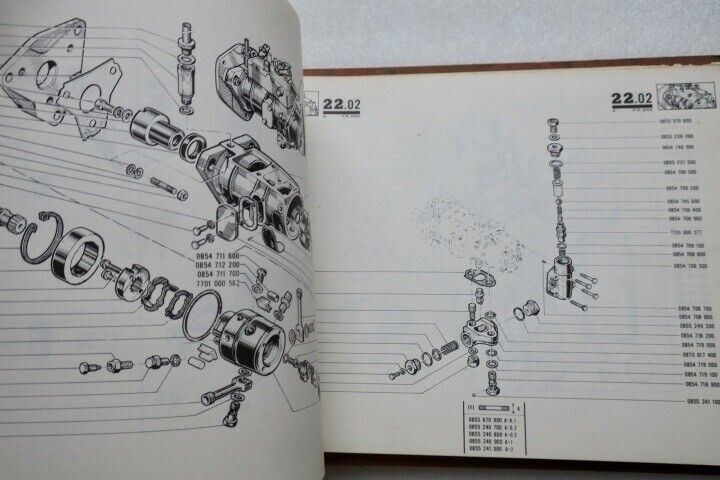 0854 711 600
0854 712 200
0854 711 700
7701 000 582
22.02
22.02
0870 575 600
0855 239 200
0854 740 900
0855 237 500
0854 708 500
0854 709 200
0854 745 600
0854 709 400
0854 708 900
7701 000 577
0854 709 100
0854 708 800
0854 708 500
0854 708 700
0854 708 600
0855 240 300
0854 718 200
0854 719 000
0870 017 400
0854 719 000
0854 719 100
0854 718 900
0855 241 100
(1)
A
0855 670 900 A=0.1
0855 240 700 A=0.2
0855 240 800 A=0.5
0855 240 900 A=1
0855 241 000 A=2